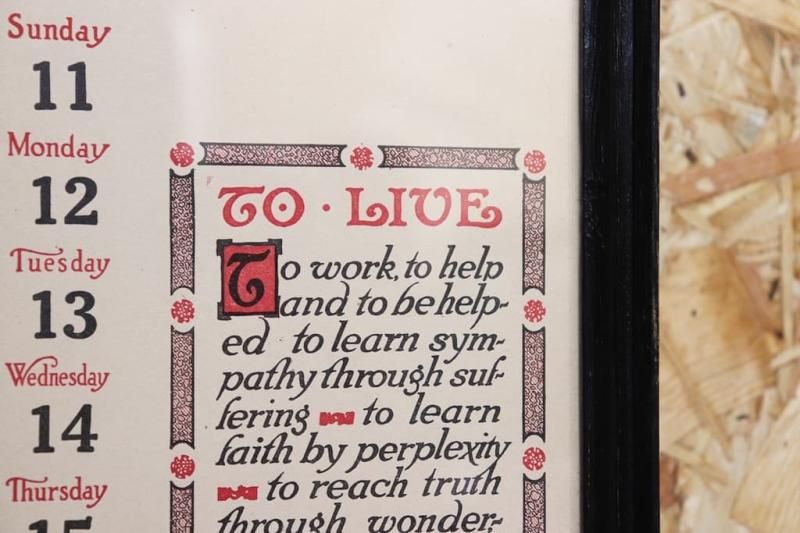 Sunday
11
Monday
12
Tuesday
13
Wednesday
14
Thursday
15
TO · LIVE
To work, to help
and to be help-
ed to learn sym-
pathy through suf-
fering to learn
faith by perplexity
to reach truth
through wonder-